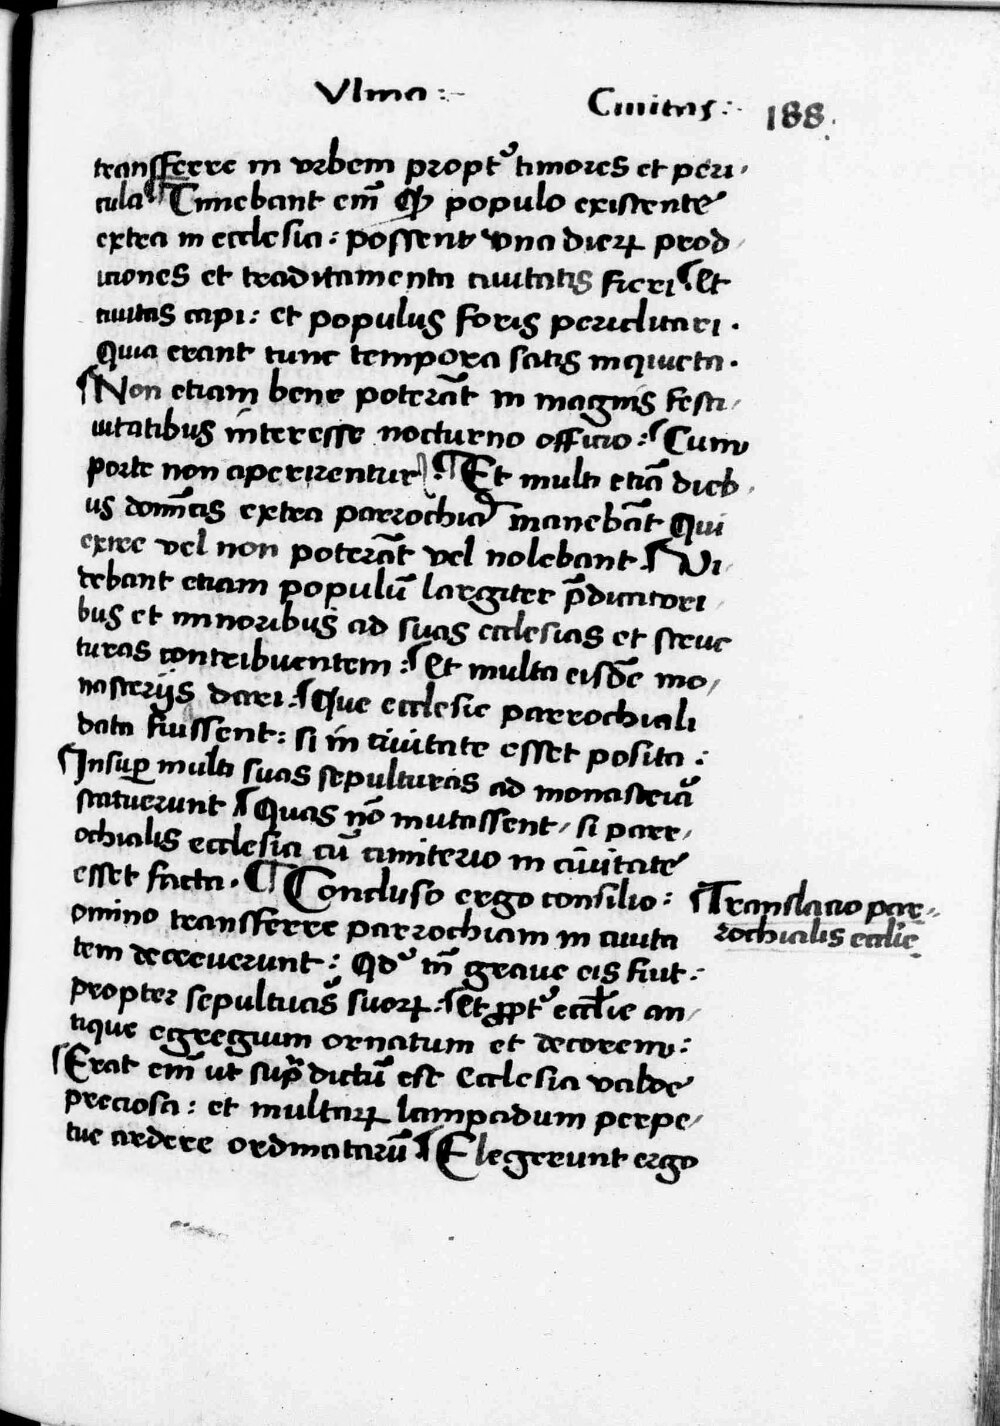 Vlma :-
Ciuitas :- 188.
transferre in vrbem propt᷒ timores et peri-
cula ¶ Timebant em̄ Ꝙ populo existente
extra in ecclesia : possent vna dieꝝ prod-
iciones et traditamenta ciuitatis fieri ¶ et
ciuitas capi : et populus foris periclitari .
Quia erant tunc tempora satis inquieta .
¶ Non etiam bene poterāt in magnis festi-
uitatibus interesse nocturno officio : ¶ Cum
porte non aperirentur . ¶ Et multi etiā dieb-
us domīcis extra parrochiā manebāt Qui
exire vel non poterāt vel nolebant ¶ Vi-
debant etiam populū largiter p̄dicatori-
bus et minoribus ad suas ecclesias et struc
turas contribuentem : ¶ et multa eisdē mo-
nasterijs dari . ¶ Que ecclesie parrochiali
data fuissent : si in ciuitate esset posita :
¶ Insuꝑ multi suas sepulturas ad monasteriā
statuerunt ¶ Quas nō mutassent / si parr-
ochialis ecclesia cū cimiterio in ciuitate
esset facta . ¶ Concluso ergo consilio :
omino transferre parrochiam in ciuita
tem decreuerunt : Qd᷒ tn̄ graue eis fuit :
propter sepulturas suoꝝ . ¶ et ꝓpt᷒ eccl̄ie an-
tique egregium ornatum et decorem :
¶ Erat em̄ ut sup̄dictū est ecclesia valde
preciosa : et multaꝝ lampadum perpe-
tue ardere ordinatarū ¶ Elegerunt ergo
¶ Translacio par-
rochialis eccl̄ie